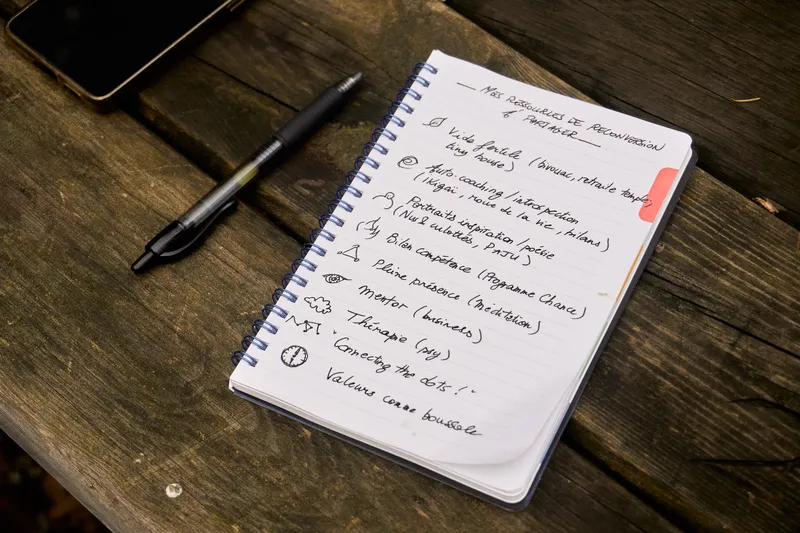 — MES RESSOURCES DE RECONVERSION
À PARTAGER —
Vide fertile (bivouac, retraite temple,
tiny house)
Auto-coaching / introspection
(Ikigaï, roue de la vie, bilans)
Portraits inspiration / poésie
(Nus & culottés, PAJU)
Bilan compétence (Programme Chance)
Pleine présence (Méditation)
Mentor (business)
Thérapie (psy)
"Connecting the dots !"
Valeurs comme boussole